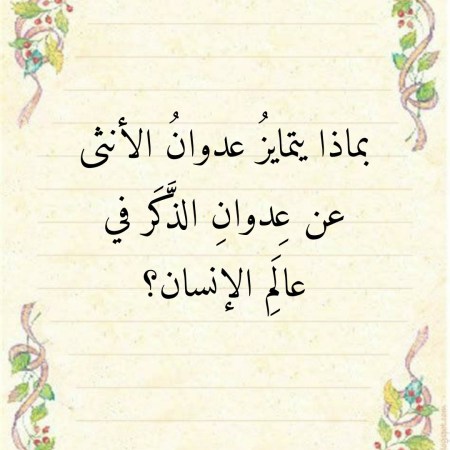 بماذا يتمايزُ عدوانُ الأنثى
عن عِدوانِ الذَّكَر في
عالَمِ الإنسان؟